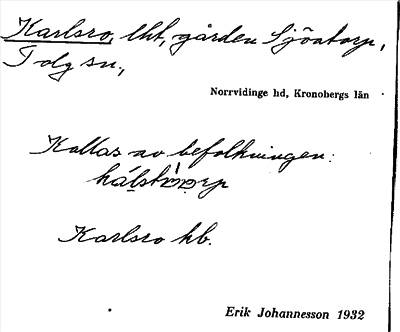 Karlsro, lht, gården Sjöatorp,
Tolg sn.,
Norrvidinge hd, Kronobergs län
Kallas av befolkningen:
Karlsro hb.
Erik Johannesson 1932